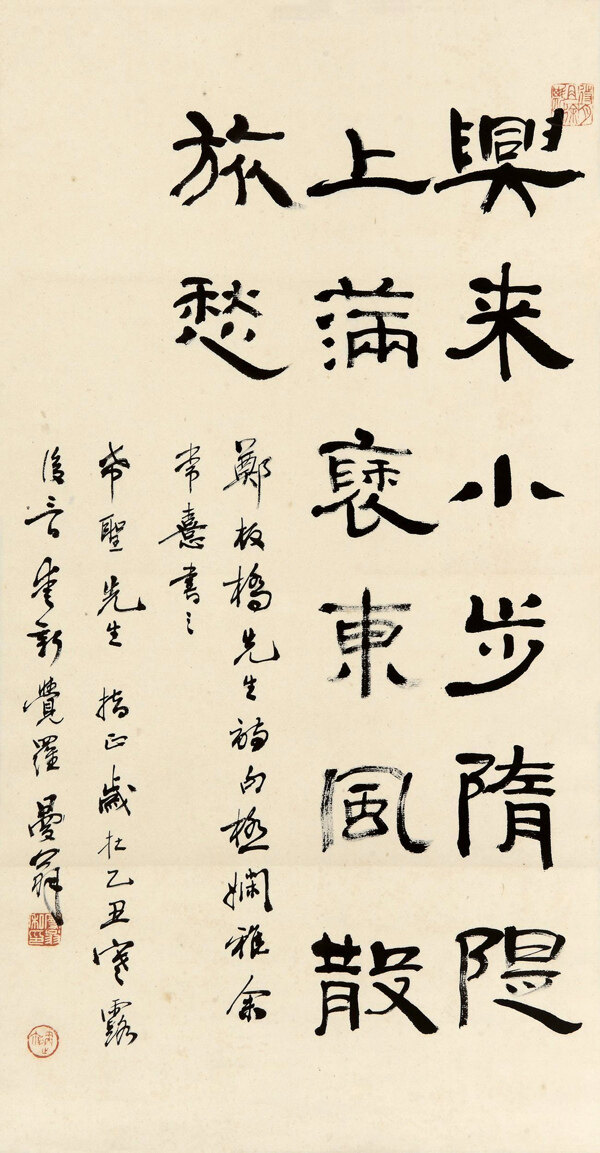 興来小步隋隄
上滿褎東風散
旅愁
鄭板橋先生詩句極嫻雅余
常憙書之
希聖先生 指正歲在乙丑寒露
後三日愛新覺羅曼翁